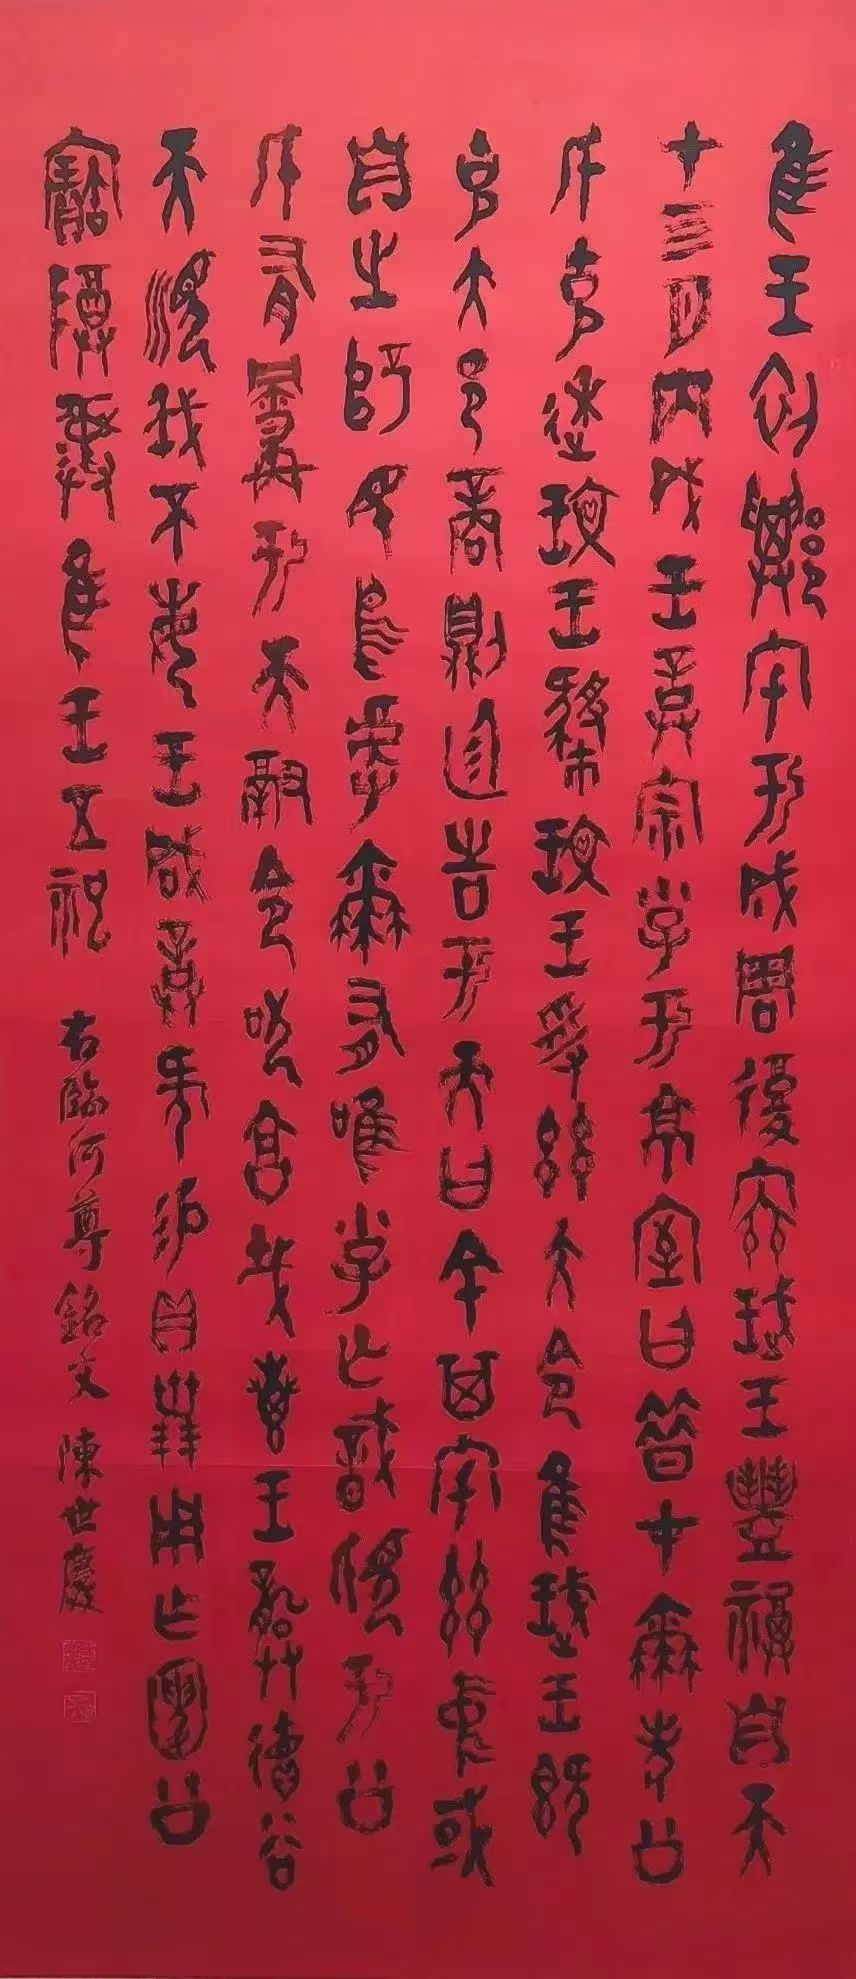 隹王初𨛫宅于成周復禀珷王豐福自天
才亖月丙戌王𧧼宗小子于京室曰昔才爾考公
氏克逨玟王肆玟王受茲大令隹珷王既
克大邑商則廷告于天曰余其宅茲中或
自之乂民烏虖爾有唯小子亡識視于公
氏有爵于天徹令敬享哉叀王龏德谷
天順我不敏王咸𧧼何易貝卅朋用乍𢉩公
寶尊彝隹王五祀 右臨何尊銘文 陳世慶